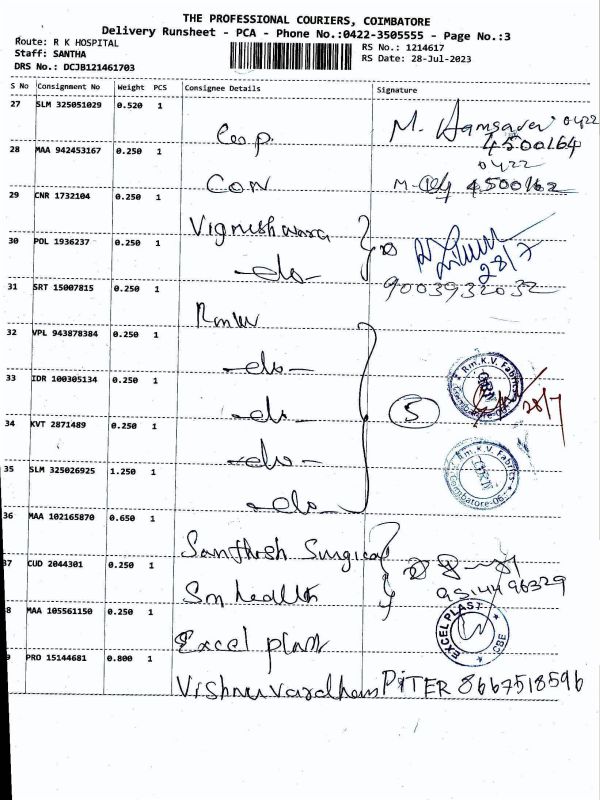 THE PROFESSIONAL COURIERS, COIMBATORE
Delivery Runsheet - PCA - Phone No.:0422-3505555 - Page No.:3
Route: R K HOSPITAL
RS No.: 1214617
Staff: SANTHA
RS Date: 28-Jul-2023
DRS No.: DCJB121461703
S No Consignment No Weight PCS Consignee Details Signature
27 SLM 325051029 0.520 1
M. Hamsaveni 0422
4500164
28 MAA 942453167 0.250 1
0422
CON M- 4500162
29 CNR 1732104 0.250 1
Vigneshwara
30 POL 1936237 0.250 1
28/7
-do-
31 SRT 15007815 0.250 1 9003932032
32 VPL 943878384 0.250 1
-do-
Rm.K.V. Fabrics
33 IDR 100305134 0.250 1
-do- 5 28/7
34 KVT 2871489 0.250 1
-do-
Rm.K.V. Fabrics
Coimbatore-06
35 SLM 325026925 1.250 1
-do-
36 MAA 102165870 0.650 1
Santhosh Surgical
37 CUD 2044301 0.250 1
9514496329
Sm health
8 MAA 105561150 0.250 1
EXCEL PLAST CBE
Excel plast
9 PRO 15144681 0.800 1
Vishnuvardhan PiTER 8667518596